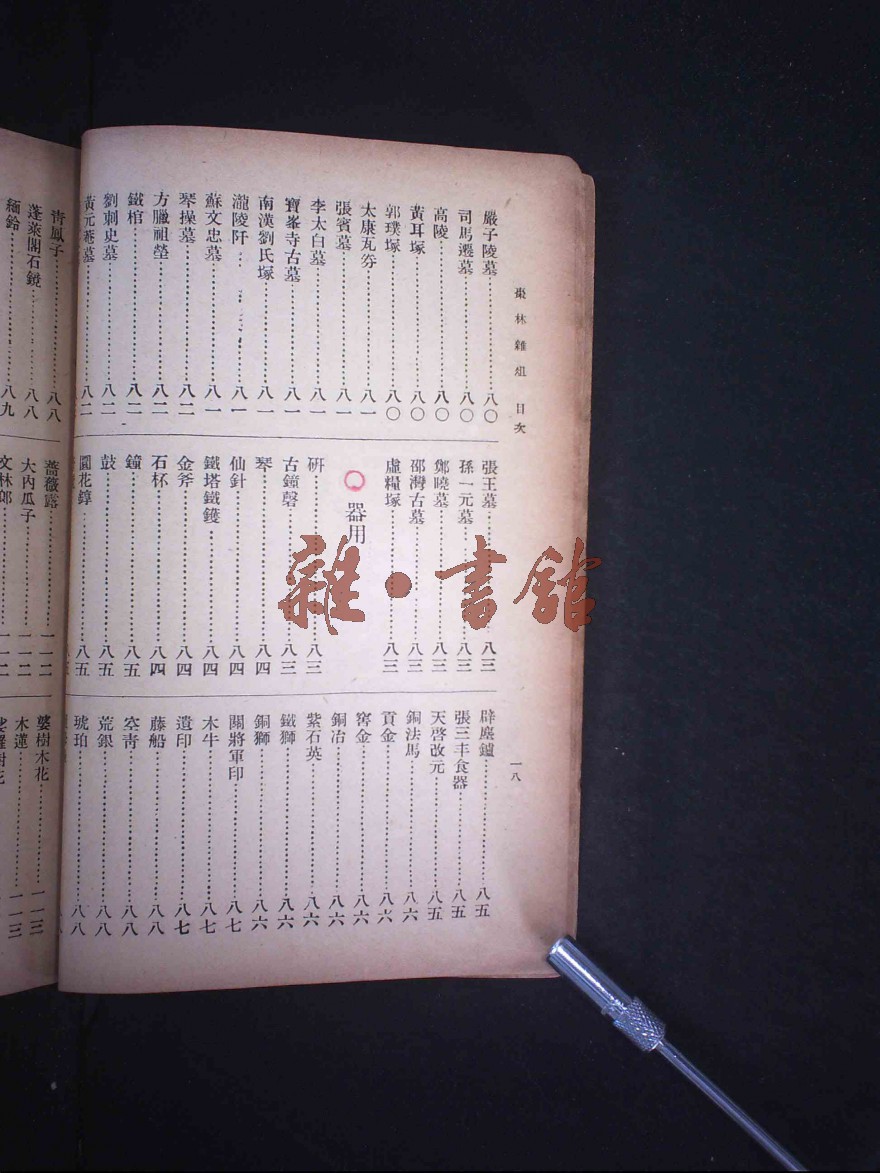 棗林雜俎 目次
一八
嚴子陵墓……八〇
司馬遷墓……八〇
高陵……八〇
黃耳塚……八〇
郭璞塚……八〇
太康瓦券……八一
張賓墓……八一
李太白墓……八一
寶峯寺古墓……八一
南漢劉氏塚……八一
瀧陵阡……八一
蘇文忠墓……八一
琴操墓……八二
方臘祖塋……八二
鐵棺……八二
劉刺史墓……八二
黃元菴墓……八二
張王墓……八三
孫一元墓……八三
鄭曉墓……八三
邵灣古墓……八三
虛糧塚……八三
〇器用
硏……八三
古鐘磬……八三
琴……八四
仙針……八四
鐵塔鐵鑊……八四
金斧……八四
石杯……八四
鐘……八五
鼓……八五
圜花錞……八五
辟塵鑪……八五
張三丰食器……八五
天啓改元……八五
銅法馬……八六
貢金……八六
窖金……八六
銅冶……八六
紫石英……八六
鐵獅……八六
銅獅……八六
關將軍印……八七
木牛……八七
遺印……八七
藤船……八八
空靑……八八
荒銀……八八
琥珀……八八
靑鳳子……八八
蓬萊閣石鏡……八八
緬鈴……八九
薔薇露……一一二
大內瓜子……一一二
文林郎……一一二
婆樹木花……一一三
木蓮……一一三
雜·書館